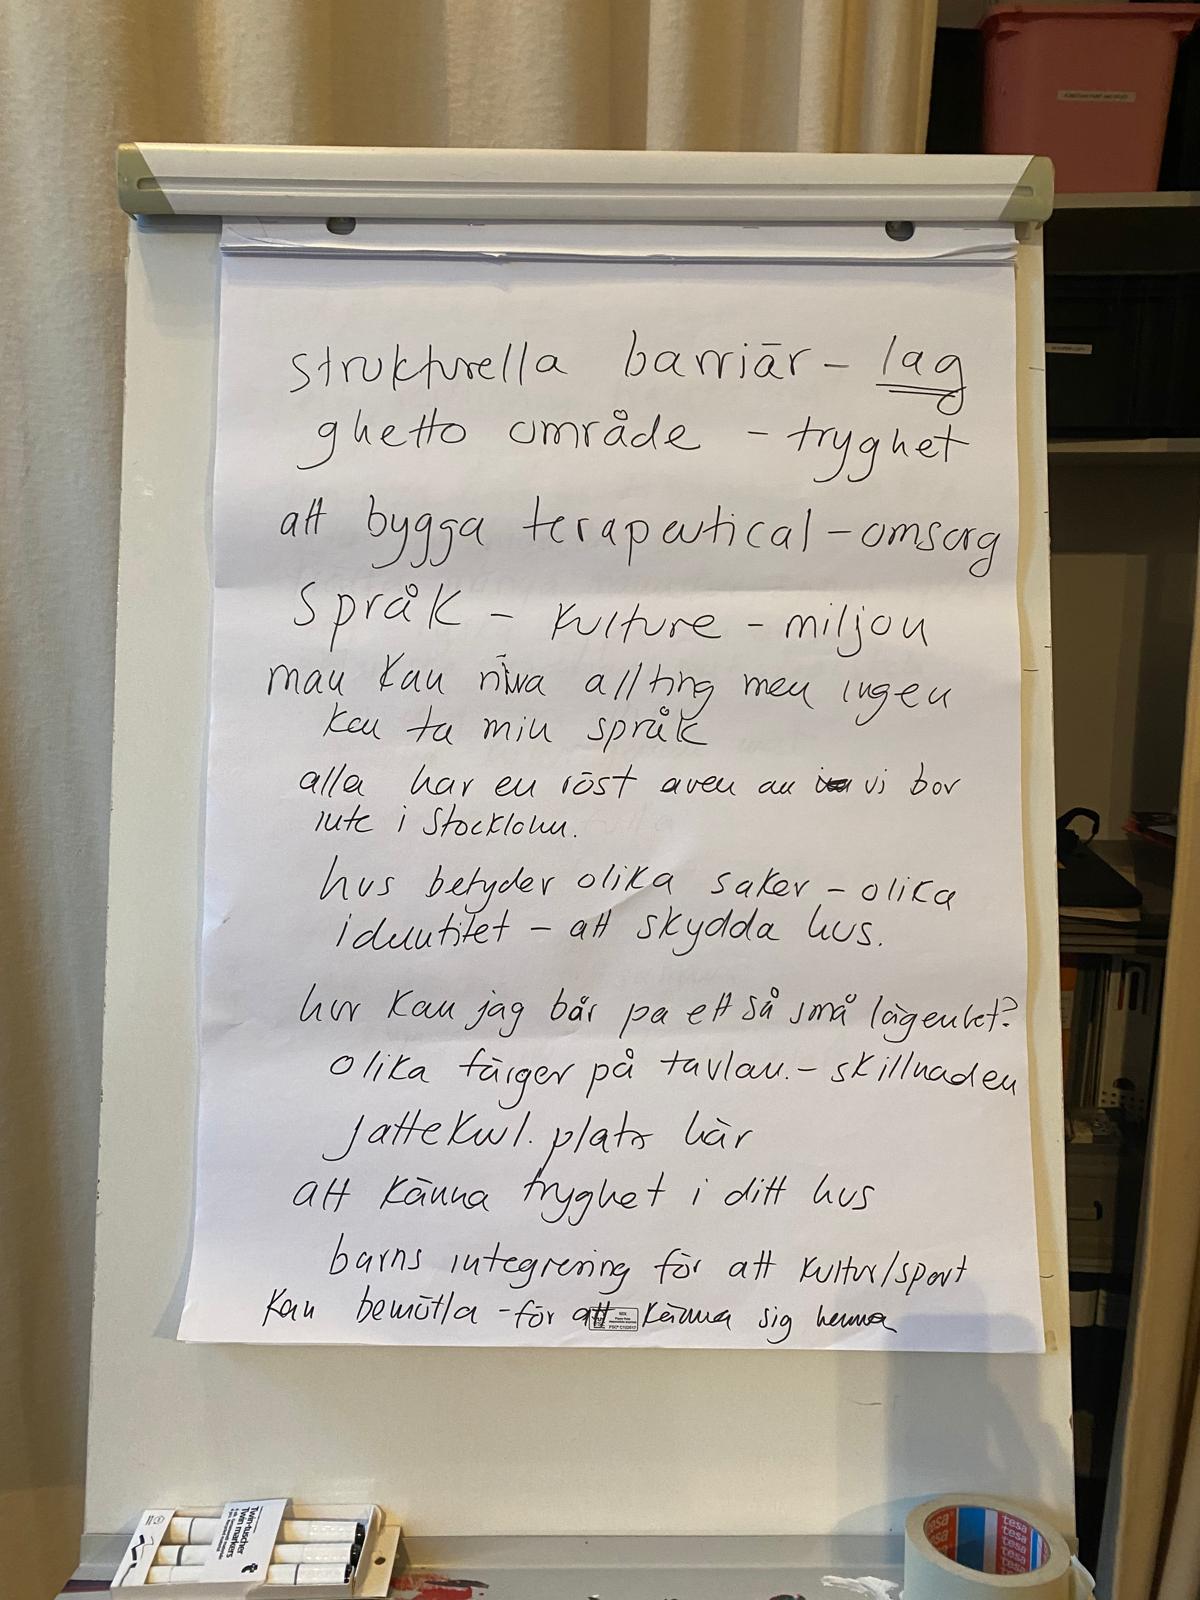 strukturella barriär - lag
ghetto område - tryghet
att bygga terapeutical - omsorg
språk - kulture - miljou
man kan riva allting men ingen
kan ta min språk
alla har en röst aven an vi bor
inte i Stocklohn.
hus betyder olika saker - olika
identitet - att skydda hus.
hur kan jag bår pa ett så små lägenhet?
Olika färger på tavlan. - skillnaden
Jattekul. plats här
att känna tryghet i ditt hus
barns integrering för att kultur/sport
kan bemötla - för att känna sig hemma
Twin-tuscher
Twin markers
tesa
tesa
tesa
tesa
tesa